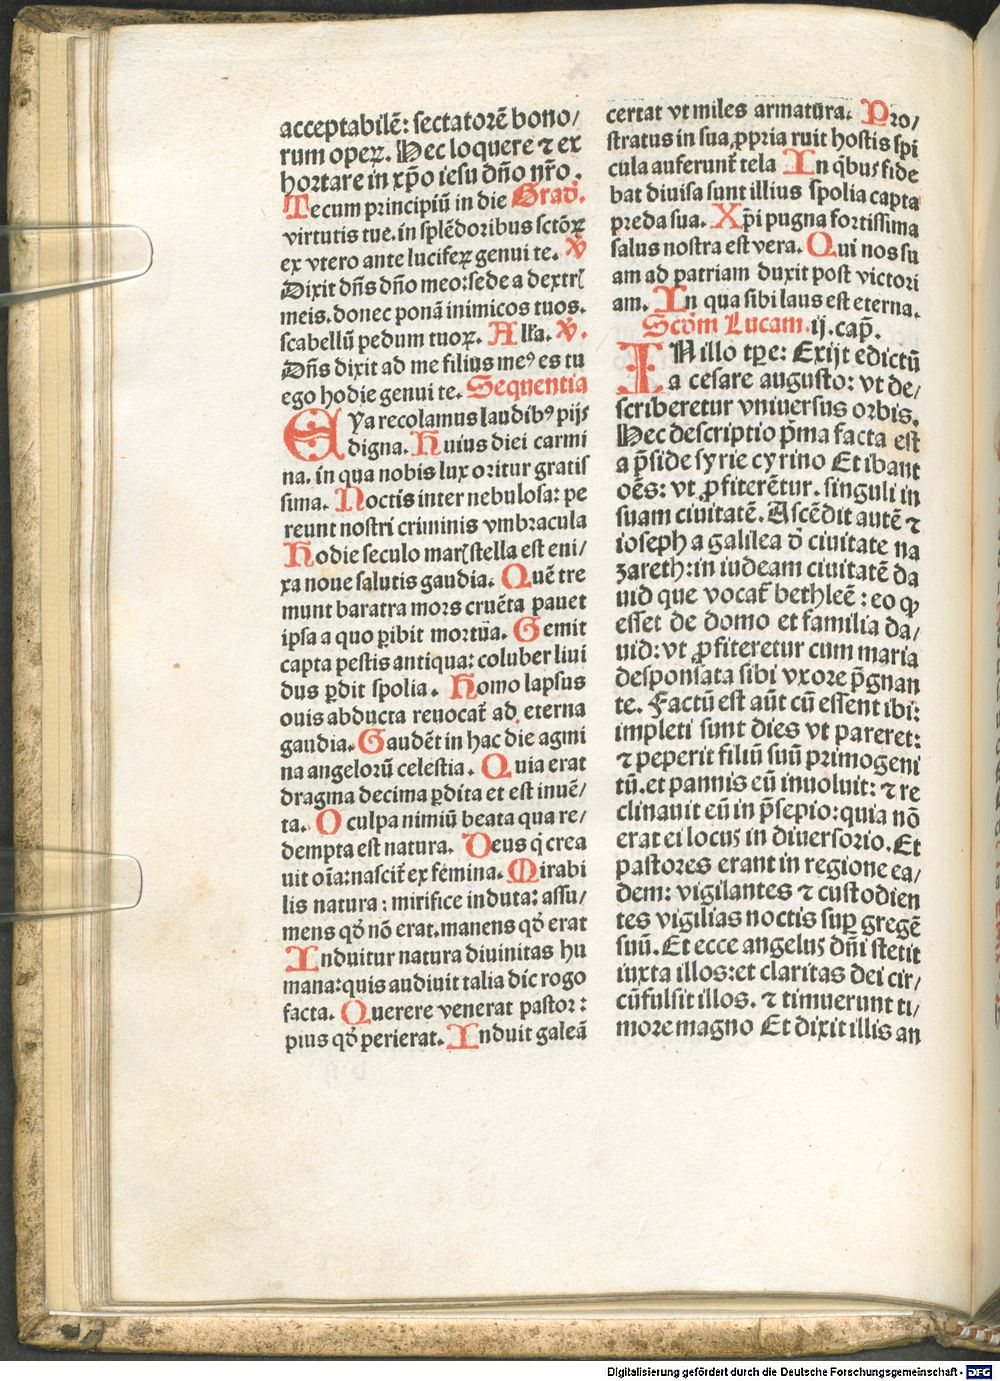 acceptabilē: sectatorē bono/
rum operꝝ. Hec loquere ⁊ ex
hortare in xp̄o iesu dn̄o nr̄o.
Tecum principiū in die Grad᷒.
virtutis tue. in splēdoribus sctōꝝ
ex vtero ante luciferꝝ genui te. V̄
Dixit dn̄s dn̄o meo: sede a dextrꝭ
meis. donec ponā inimicos tuos.
scabellū pedum tuoꝝ. Alľa. V̄.
Dn̄s dixit ad me filius meꝰ es tu
ego hodie genui te. Sequentia
EYa recolamus laudibꝰ pijs
digna. Huius diei carmi
na. in qua nobis lux oritur gratis
sima. Noctis inter nebulosa: pe
reunt nostri criminis vmbracula
Hodie seculo marꝭ stella est eni/
xa noue salutis gaudia. Quē tre
munt baratra mors cruēta pauet
ipsa a quo ꝑibit mortua. Gemit
capta pestis antiqua: coluber liui
dus ꝑdit spolia. Homo lapsus
ouis abducta reuocat᷑ ad eterna
gaudia. Gaudēt in hac die agmi
na angelorū celestia. Quia erat
dragma decima ꝑdita et est inuē/
ta. O culpa nimiū beata qua re/
dempta est natura. Deus q̇ crea
uit oīa: nascit᷑ ex femina. Mirabi
lis natura: mirifice induta: assu/
mens qḋ nō erat. manens qḋ erat
Induitur natura diuinitas hu
mana: quis audiuit talia dic rogo
facta. Querere venerat pastor:
pius qḋ perierat. Induit galeā
certat vt miles armatura. Pro/
stratus in sua ꝓpria ruit hostis spi
cula auferunt᷑ tela In q̇bus fide
bat diuisa sunt illius spolia capta
preda sua. Xp̄i pugna fortissima
salus nostra est vera. Qui nos su
am ad patriam duxit post victori
am. In qua sibi laus est eterna.
Scďm Lucam. ij. cap̄.
IN illo tp̄e: Exijt edictū
a cesare augusto: vt de/
scriberetur vniuersus orbis.
Hec descriptio p̄ma facta est
a p̄side syrie cyrino Et ibant
oēs: vt ꝓfiterētur. singuli in
suam ciuitatē. Ascēdit autē ⁊
ioseph a galilea ḋ ciuitate na
zareth: in iudeam ciuitatē da
uid que vocat᷑ bethleē: eo ꝙ
esset de domo et familia da/
uid: vt ꝓfiteretur cum maria
desponsata sibi vxore p̄gnan
te. Factū est aūt cū essent ibi:
impleti sunt dies vt pareret:
⁊ peperit filiū suū primogeni
tū. et pannis eū inuoluit: ⁊ re
clinauit eū in p̄sepio: quia nō
erat ei locus in diuersorio. Et
pastores erant in regione ea/
dem: vigilantes ⁊ custodien
tes vigilias noctis suꝑ gregē
suū. Et ecce angelus dn̄i stetit
iuxta illos: et claritas dei cir/
cūfulsit illos. ⁊ timuerunt ti/
more magno Et dixit illis an
Digitalisierung gefördert durch die Deutsche Forschungsgemeinschaft - DFG